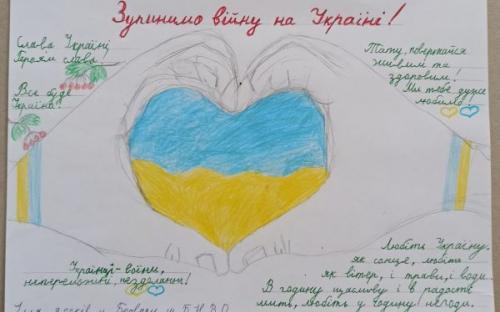 Зупинимо війну на Україні!
Слава Україні
Героям слава
Все буде
Україна!
Тату, повертайся
живим та
здоровим!
Ми тебе дуже
любимо!
Українці - воїни,
непереможні, нездоланні!
Любіть Україну,
як сонце, любіть
як вітер, і трави, і води.
В годину щасливу і в радості
мить, любіть у годину негоди.